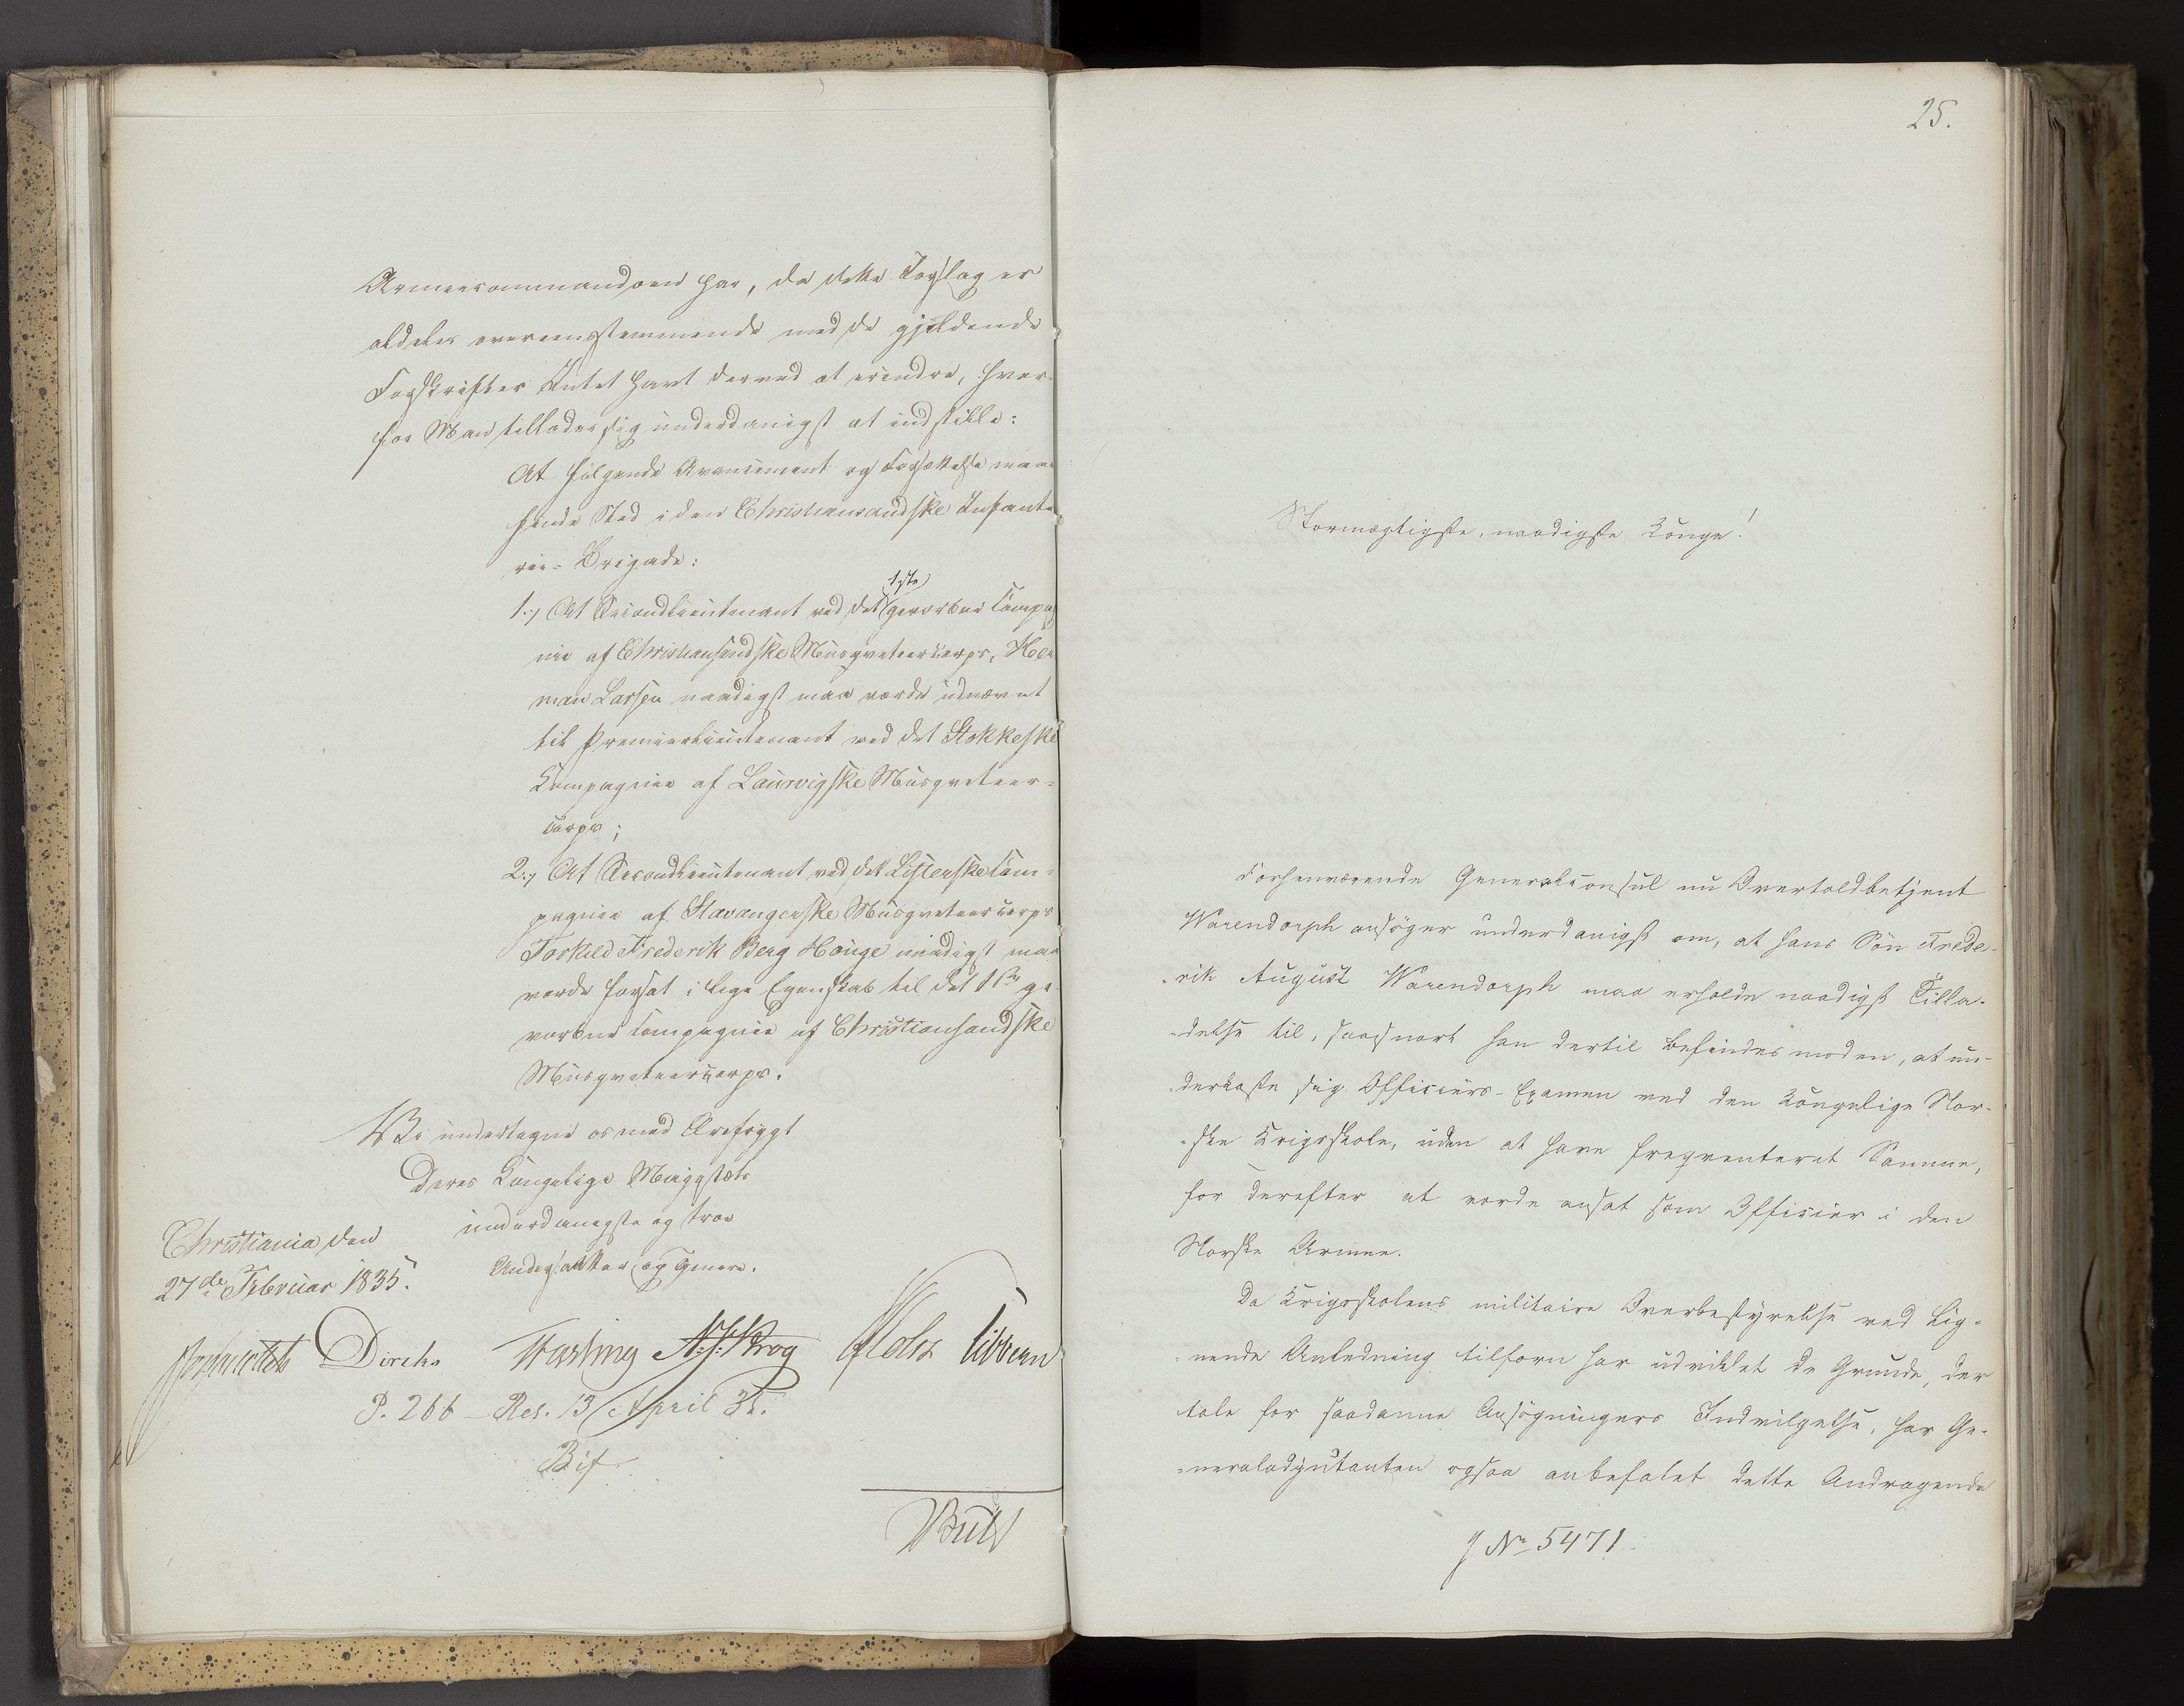 Armeecommandoen har, da dette Forslag er
aldeles overeensstemmende med de gjeldende
Forskrifter Intet havt derved at erindre, hvor-
for Man tillader sig underdanigst at indstille:
At følgende Avancement og Forsættelse maae
finde Sted i den Christiansandske Infante
rie-Brigade:
1., At Secondlieutenant ved det 1ste gevorbne Compag
nie af Christiansandske Musqveteercorps, Her
man Larsen naadigst maa vorde udnævnt
til Premierlieutenant ved det Stokkeske
Compagnie af Laurvigske Musqveteer-
corps;
2., At Secondlieutenant ved det Listerske Com-
pagnie af Stavangerske Musqveteercorps
Torkild Frederik Berg Houge naadigst maa
vorde forsat i lige Egenskab til det 1ste ge
vorbne Compagnie af Christiansandske
Musqveteercorps.
Vi undertegne os med Ærefrygt
Deres Kongelige Majestæts
underdanigste og troe
Undersaatter og Tjenere.
Christiania den
27de Februar 1835.
Diriks Fasting N. J. Krog Holst Vibe
P. 266 - Res. 13 April 35.
Bif.
Bull
25.
Stormægtigste, naadigste Konge!
Forhenværende Generalconsul nu Overtoldbetjent
Warendorph ansøger underdanigst om, at hans Søn Frede-
-rik August Warendorph maa erholde naadigst Tilla-
-delse til, saasnart han dertil befindes moden, at un-
-derkaste sig Officiers-Examen ved den Kongelige Nor-
-ske Krigsskole, uden at have freqventeret Samme,
for derefter at vorde ansat som Officier i den
Norske Armee.
Da Krigsskolens militaire Overbestyrelse ved Lig-
-nende Anledning tilforn har udviklet de Grunde, der
tale for saadanne Ansøgningers Indvilgelse, har Ge-
-neraladjutanten ogsaa anbefalet dette Andragende
J No 5471.